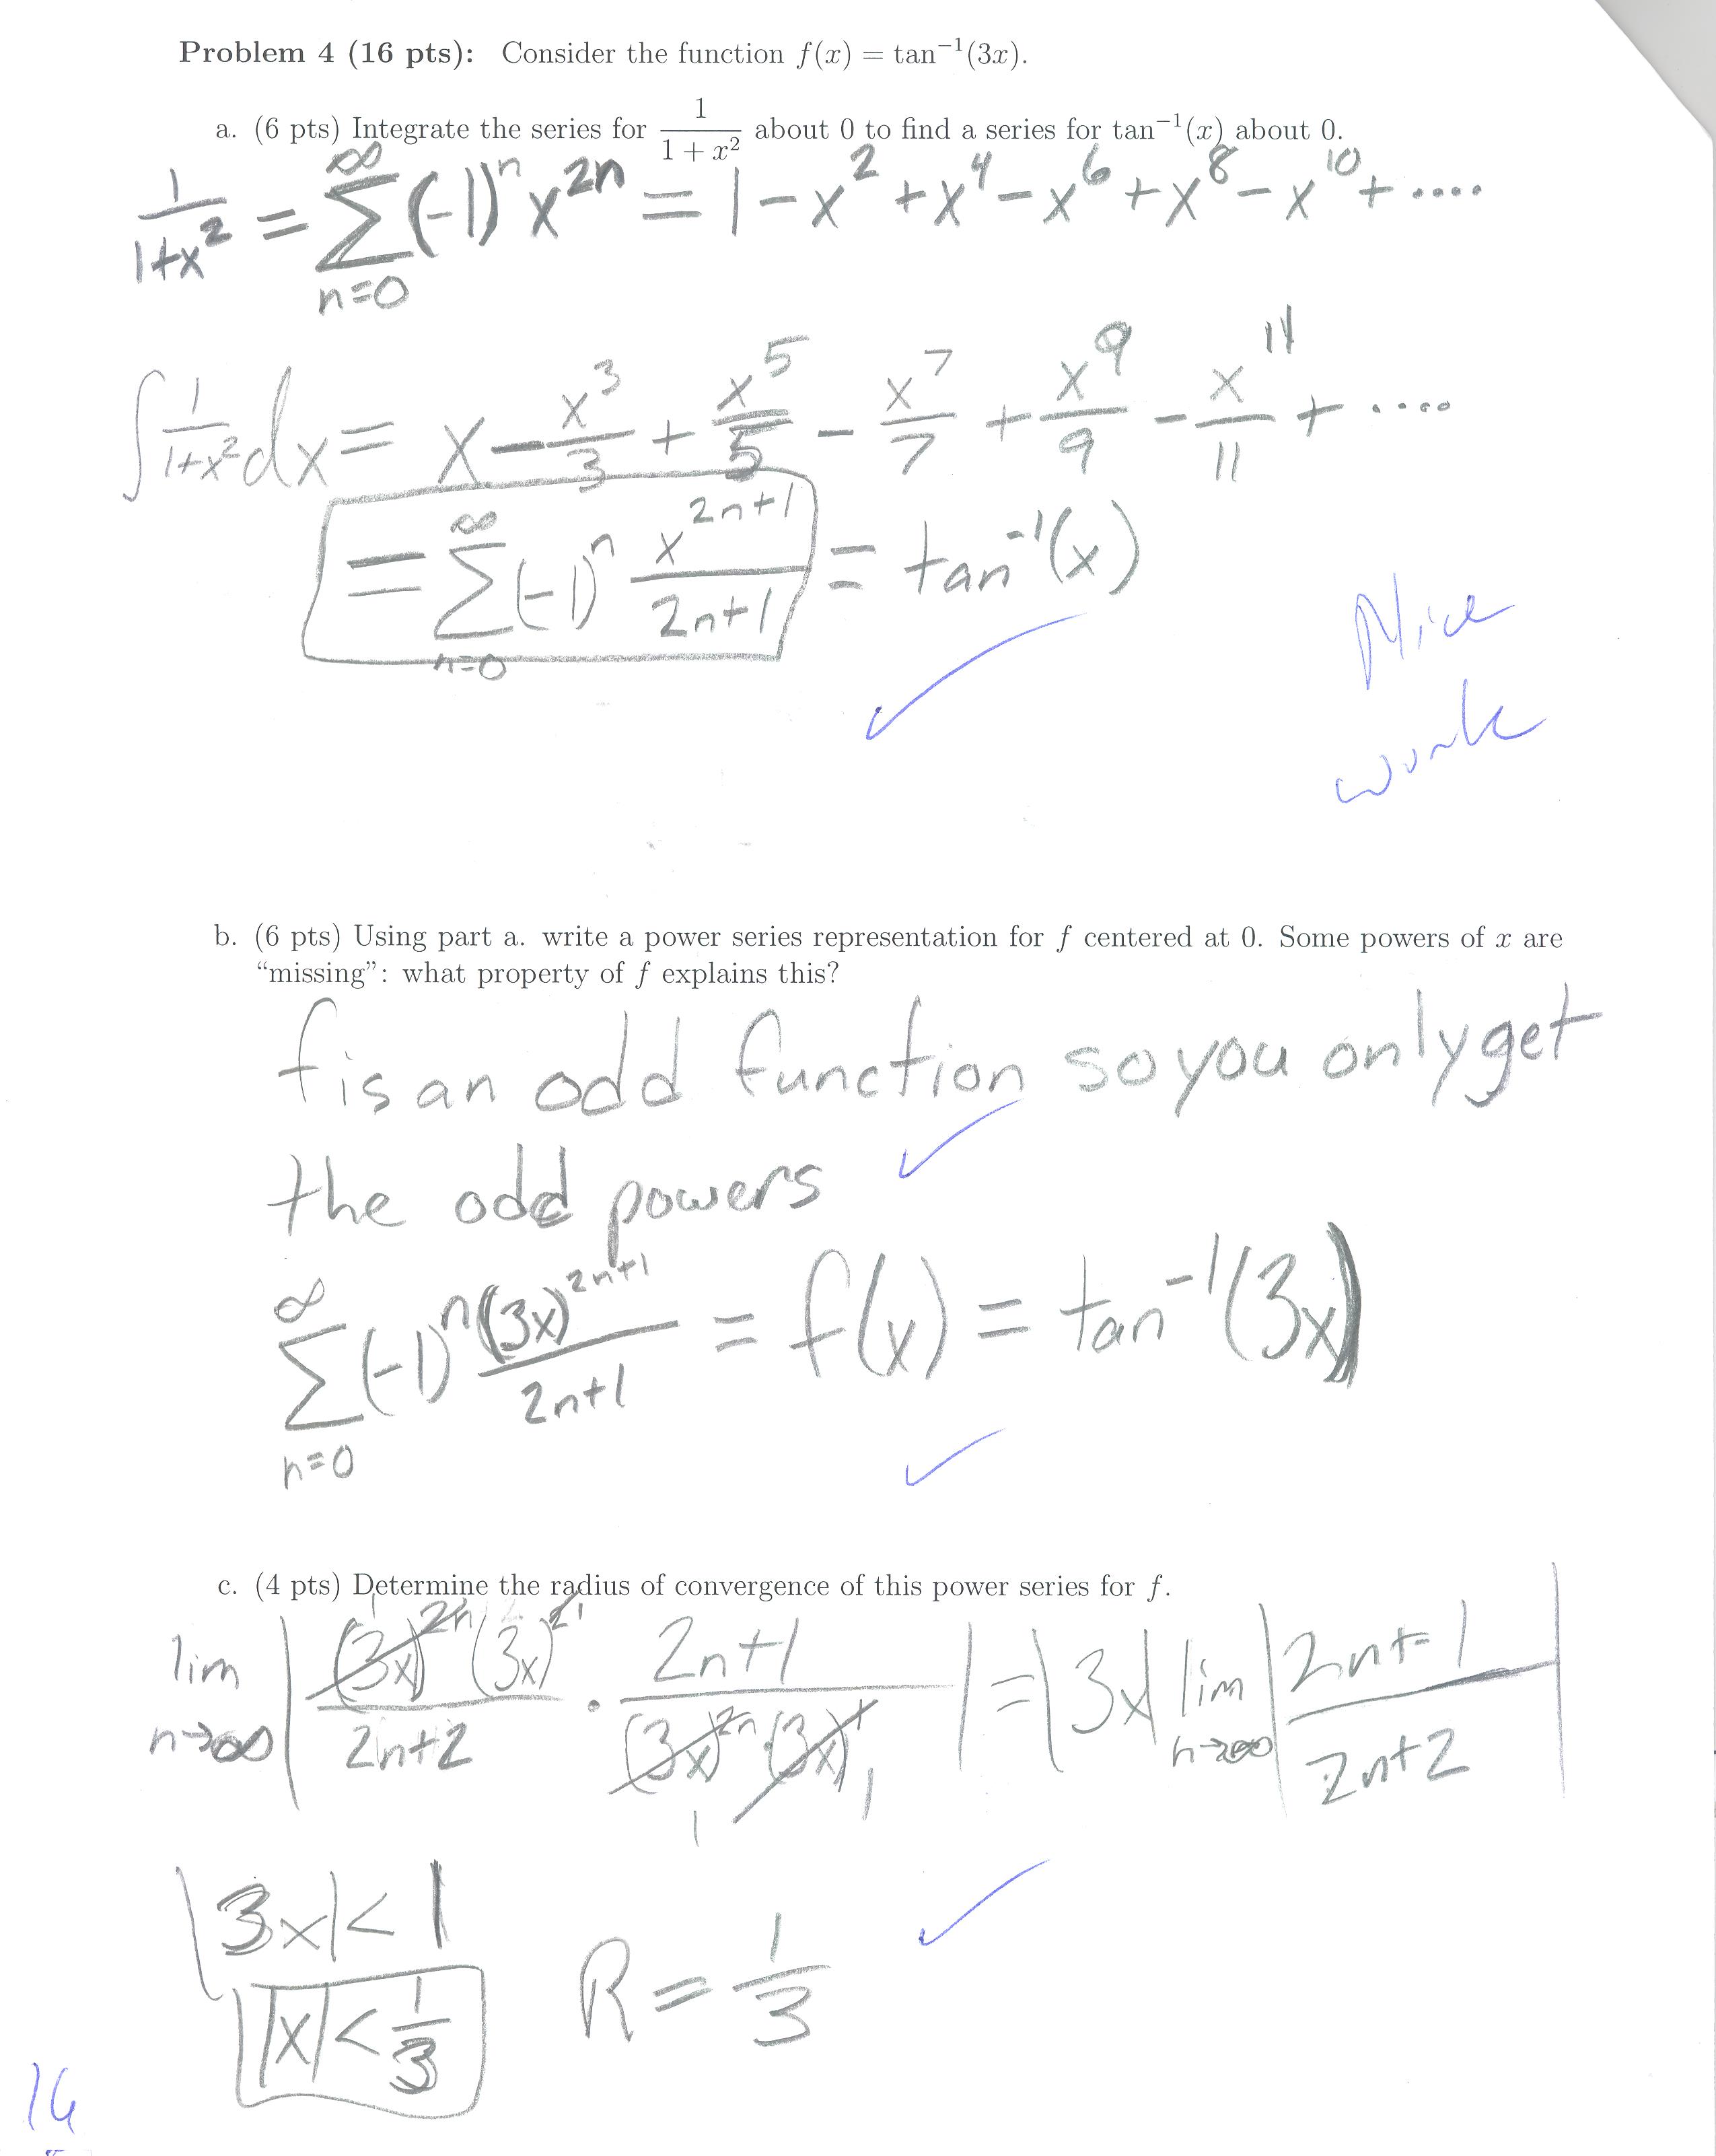 Problem 4 (16 pts): Consider the function f(x) = tan⁻¹(3x).
a. (6 pts) Integrate the series for 1/(1 + x²) about 0 to find a series for tan⁻¹(x) about 0.
1/(1+x²) = ∞∑n=0 (-1)ⁿ x²ⁿ = 1 - x² + x⁴ - x⁶ + x⁸ - x¹⁰ + ....
∫ 1/(1+x²) dx = x - x³/3 + x⁵/5 - x⁷/7 + x⁹/9 - x¹¹/11 + ....
= ∞∑n=0 (-1)ⁿ x²ⁿ⁺¹/(2n+1) = tan⁻¹(x)
Nice
work
b. (6 pts) Using part a. write a power series representation for f centered at 0. Some powers of x are
“missing”: what property of f explains this?
f is an odd function so you only get
the odd powers
∞∑n=0 (-1)ⁿ (3x)²ⁿ⁺¹/(2n+1) = f(x) = tan⁻¹(3x)
c. (4 pts) Determine the radius of convergence of this power series for f.
lim n→∞ | (3x)²ⁿ (3x)²/(2n+2) · (2n+1)/((3x)²ⁿ·(3x)¹) | = |3x| lim n→∞ | (2n+1)/(2n+2) |
|3x| < 1
|x| < 1/3 R = 1/3
16